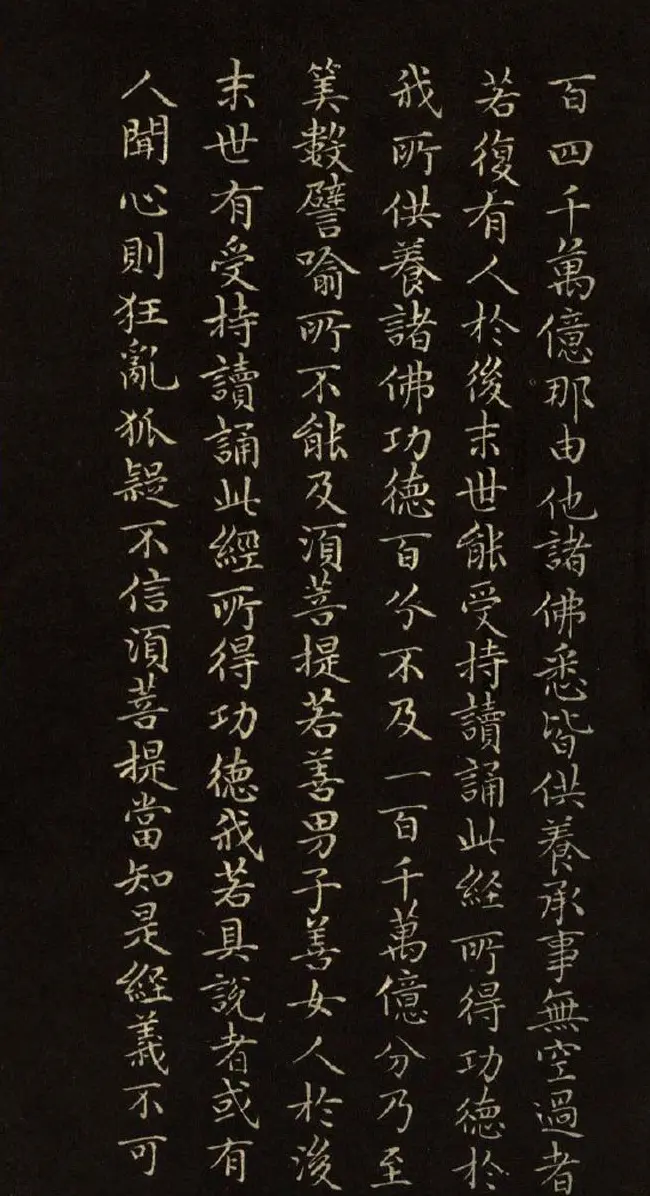 百四千萬億那由他諸佛悉皆供養承事無空過者
若復有人於後末世能受持讀誦此經所得功德於
我所供養諸佛功德百分不及一百千萬億分乃至
筭數譬喻所不能及須菩提若善男子善女人於後
末世有受持讀誦此經所得功德我若具說者或有
人聞心則狂亂狐疑不信須菩提當知是經義不可